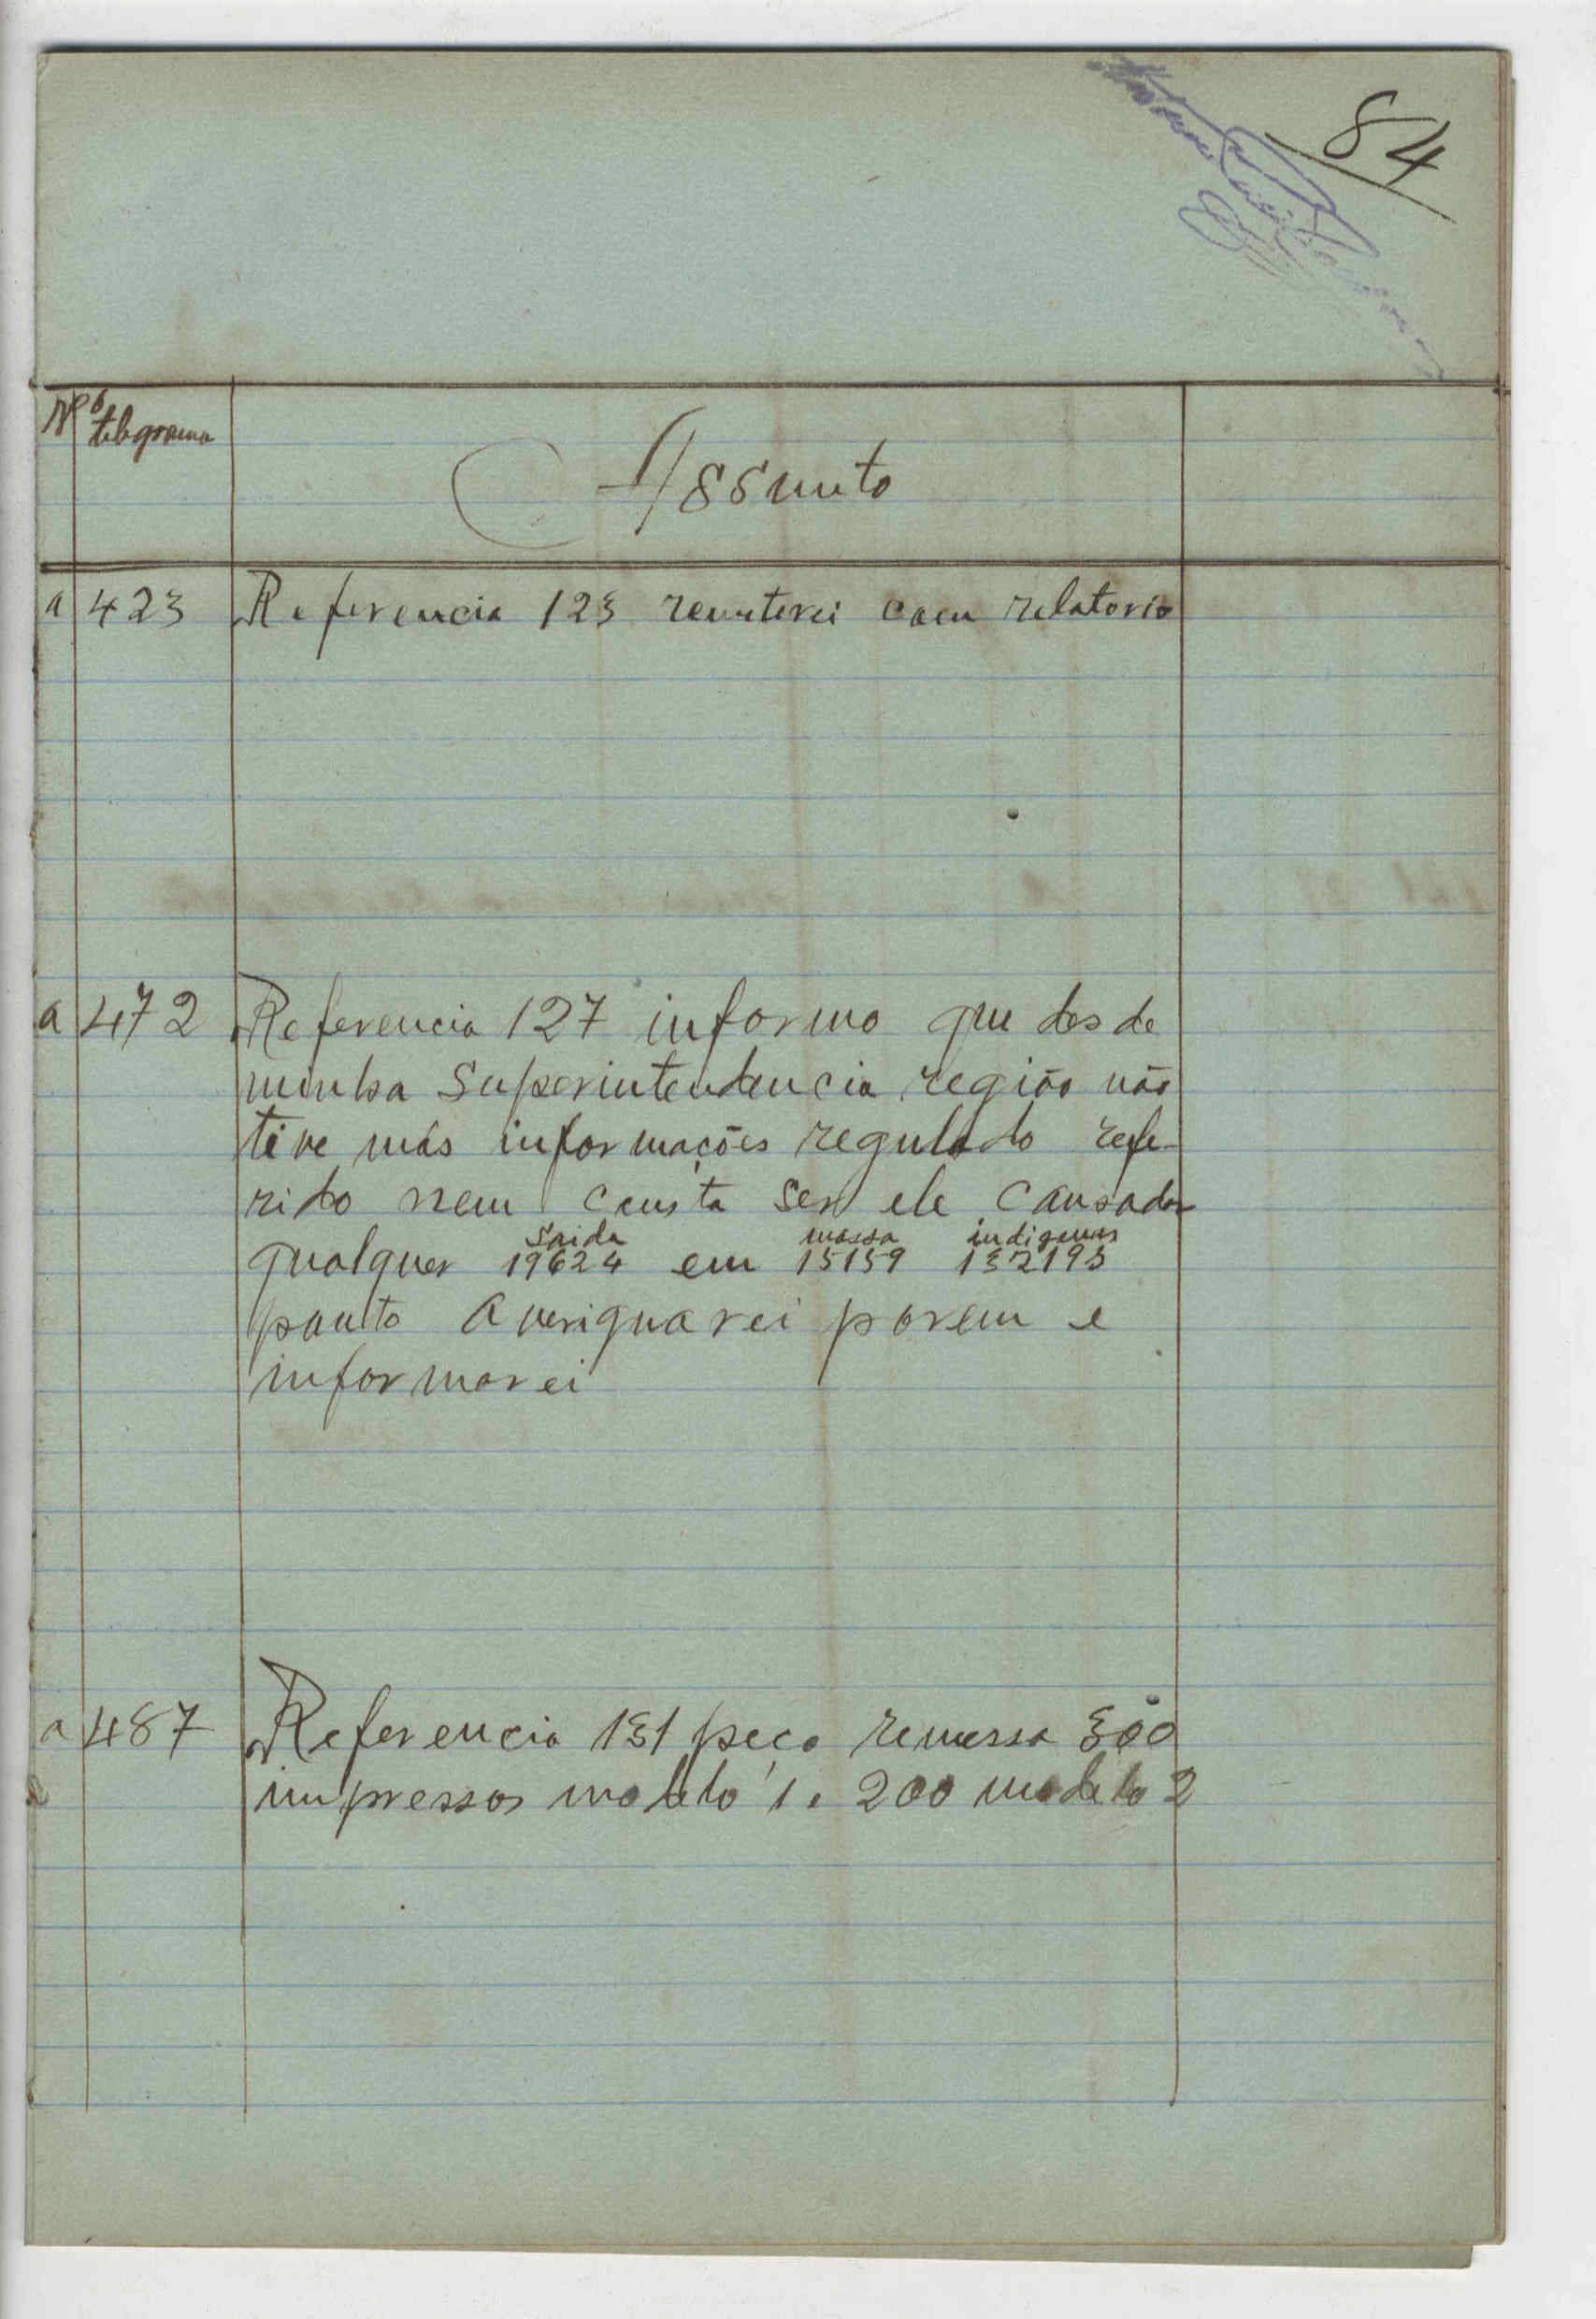 84
Nº
telegrama
Assunto
a 423 Referencia 123 remeterei com relatorio
a 472 Referencia 127 informo que desde
minha Superintendencia região não
tive más informações regulado refe-
rido nem consta ser ele causador
saida massa indigenas
qualquer 19624 em 15159 132193
ponto averiguarei porem e
informarei
a 487 Referencia 131 peço remessa 300
impressos modelo 1 e 200 modelo 2